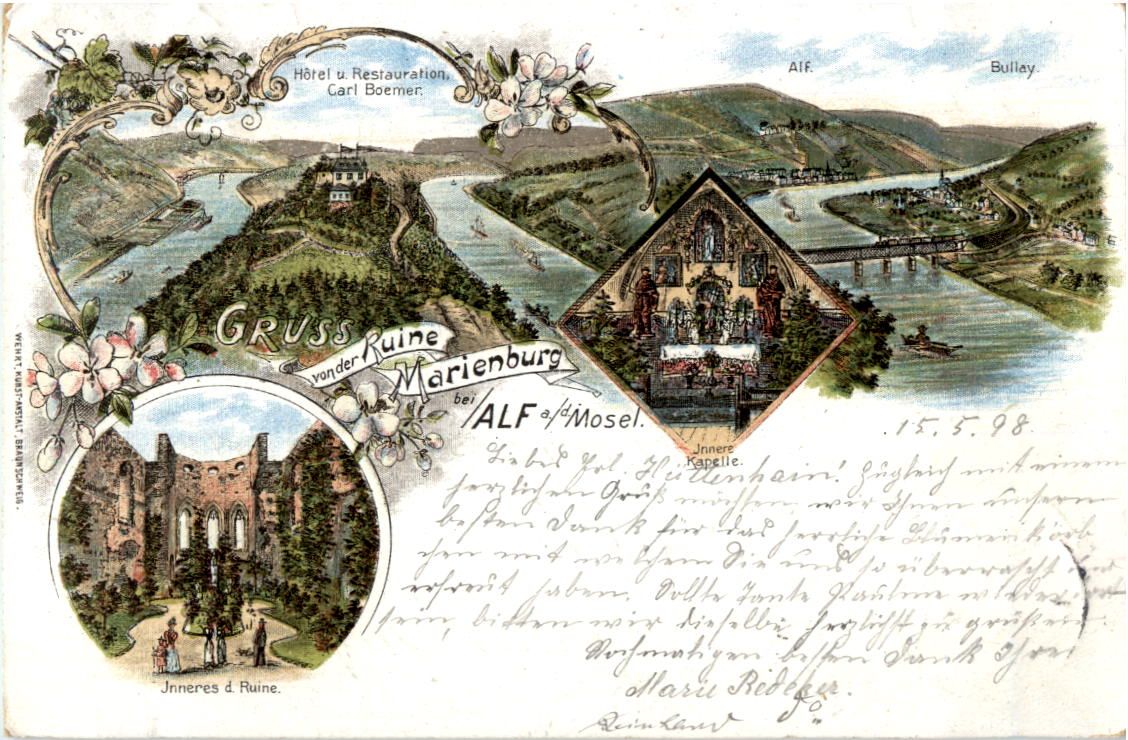 Hôtel u. Restauration,
Carl Boemer.
Alf.
Bullay.
GRUSS
von der Ruine
Marienburg
bei ALF a/d. Mosel.
Jnnere
Kapelle.
WEHRT, KUNST-ANSTALT, BRAUNSCHWEIG.
Jnneres d. Ruine.
15.5.98.
Liebes Frl. Hüllenhain! Zugleich mit einem
herzlichen Gruß möchten wir Ihnen unsern
besten Dank für das herrliche Blumenkörb
chen mit welchem Sie uns so überrascht und
erfreut haben. Sollte Tante Pauline wieder dort
sein, bitten wir dieselbe herzlichst zu grüßen.
Nochmaligen besten Dank Ihre
Marie Redeker.